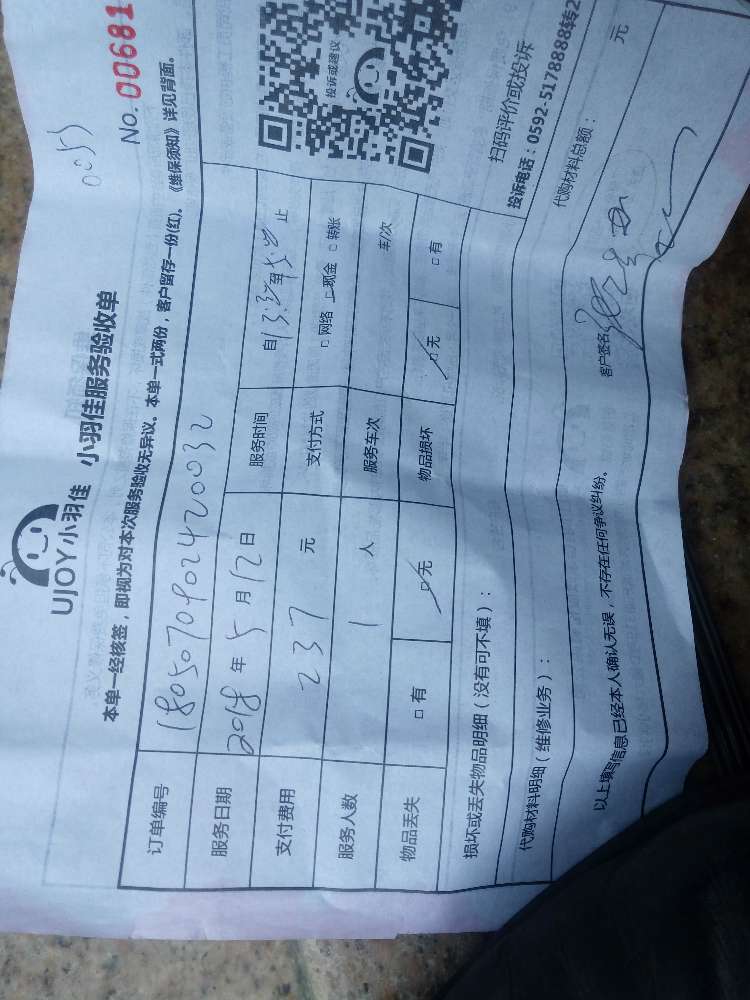 0055
No. 00681
UJOY小羽佳 小羽佳服务验收单
本单一经核签，即视为对本次服务验收无异议。本单一式两份，客户留存一份(红)。《维保须知》详见背面。
订单编号 180507090242 0032
服务日期 2018 年 5 月 12 日 服务时间 自 13:30 至 15:30 止
支付费用 237 元 支付方式 □ 网络 现金 □ 转账
服务人数 1 人 服务车次 车/次
物品丢失 □ 有 □ 无 物品损坏 □ 无 □ 有
投诉或建议
扫码评价或投诉
投诉电话：0592-5178888转2
损坏或丢失物品明细（没有可不填）：
代购材料明细（维修业务）： 代购材料总额： 元
以上填写信息已经本人确认无误，不存在任何争议纠纷。 客户签名